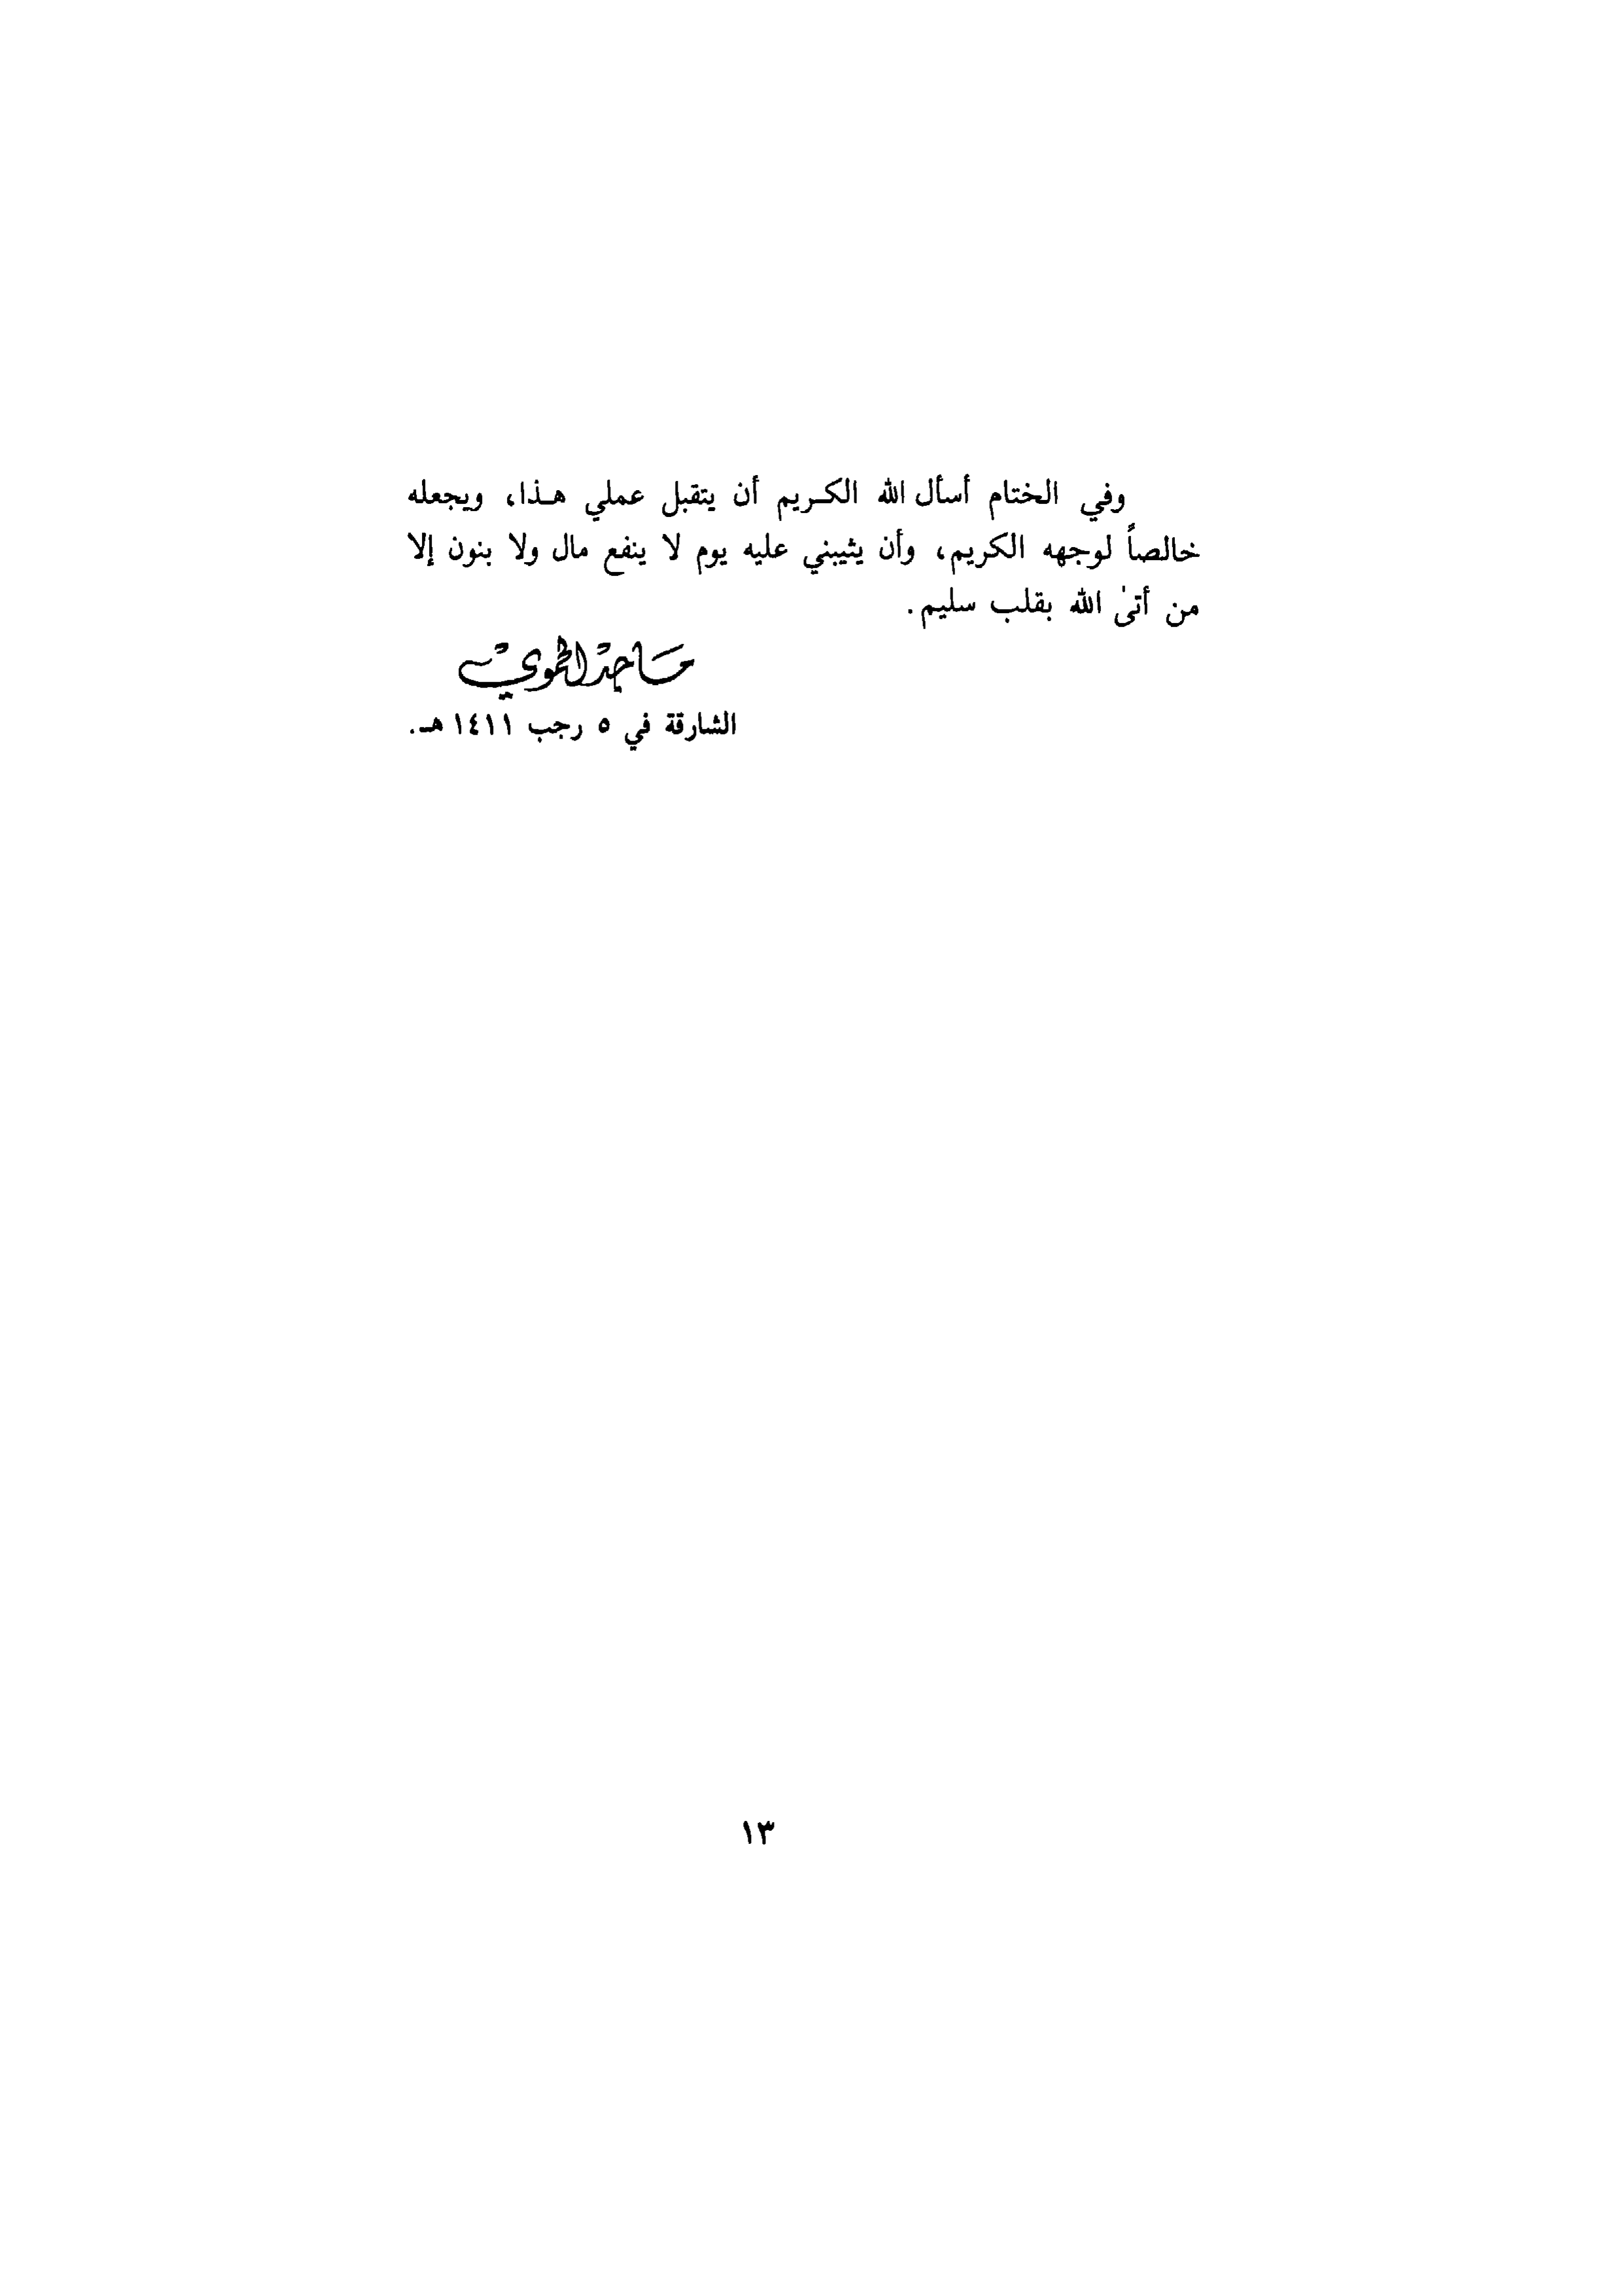 وفي الختام أسأل الله الكـريم أن يتقبل عملي هـذا، ويجعله
خالصاً لوجهه الكريم، وأن يثيبني عليه يوم لا ينفع مال ولا بنون إلا
من أتىٰ الله بقلب سليم.
ماجد الحموي
الشارقة في ٥ رجب ١٤١١ هـ.
١٣